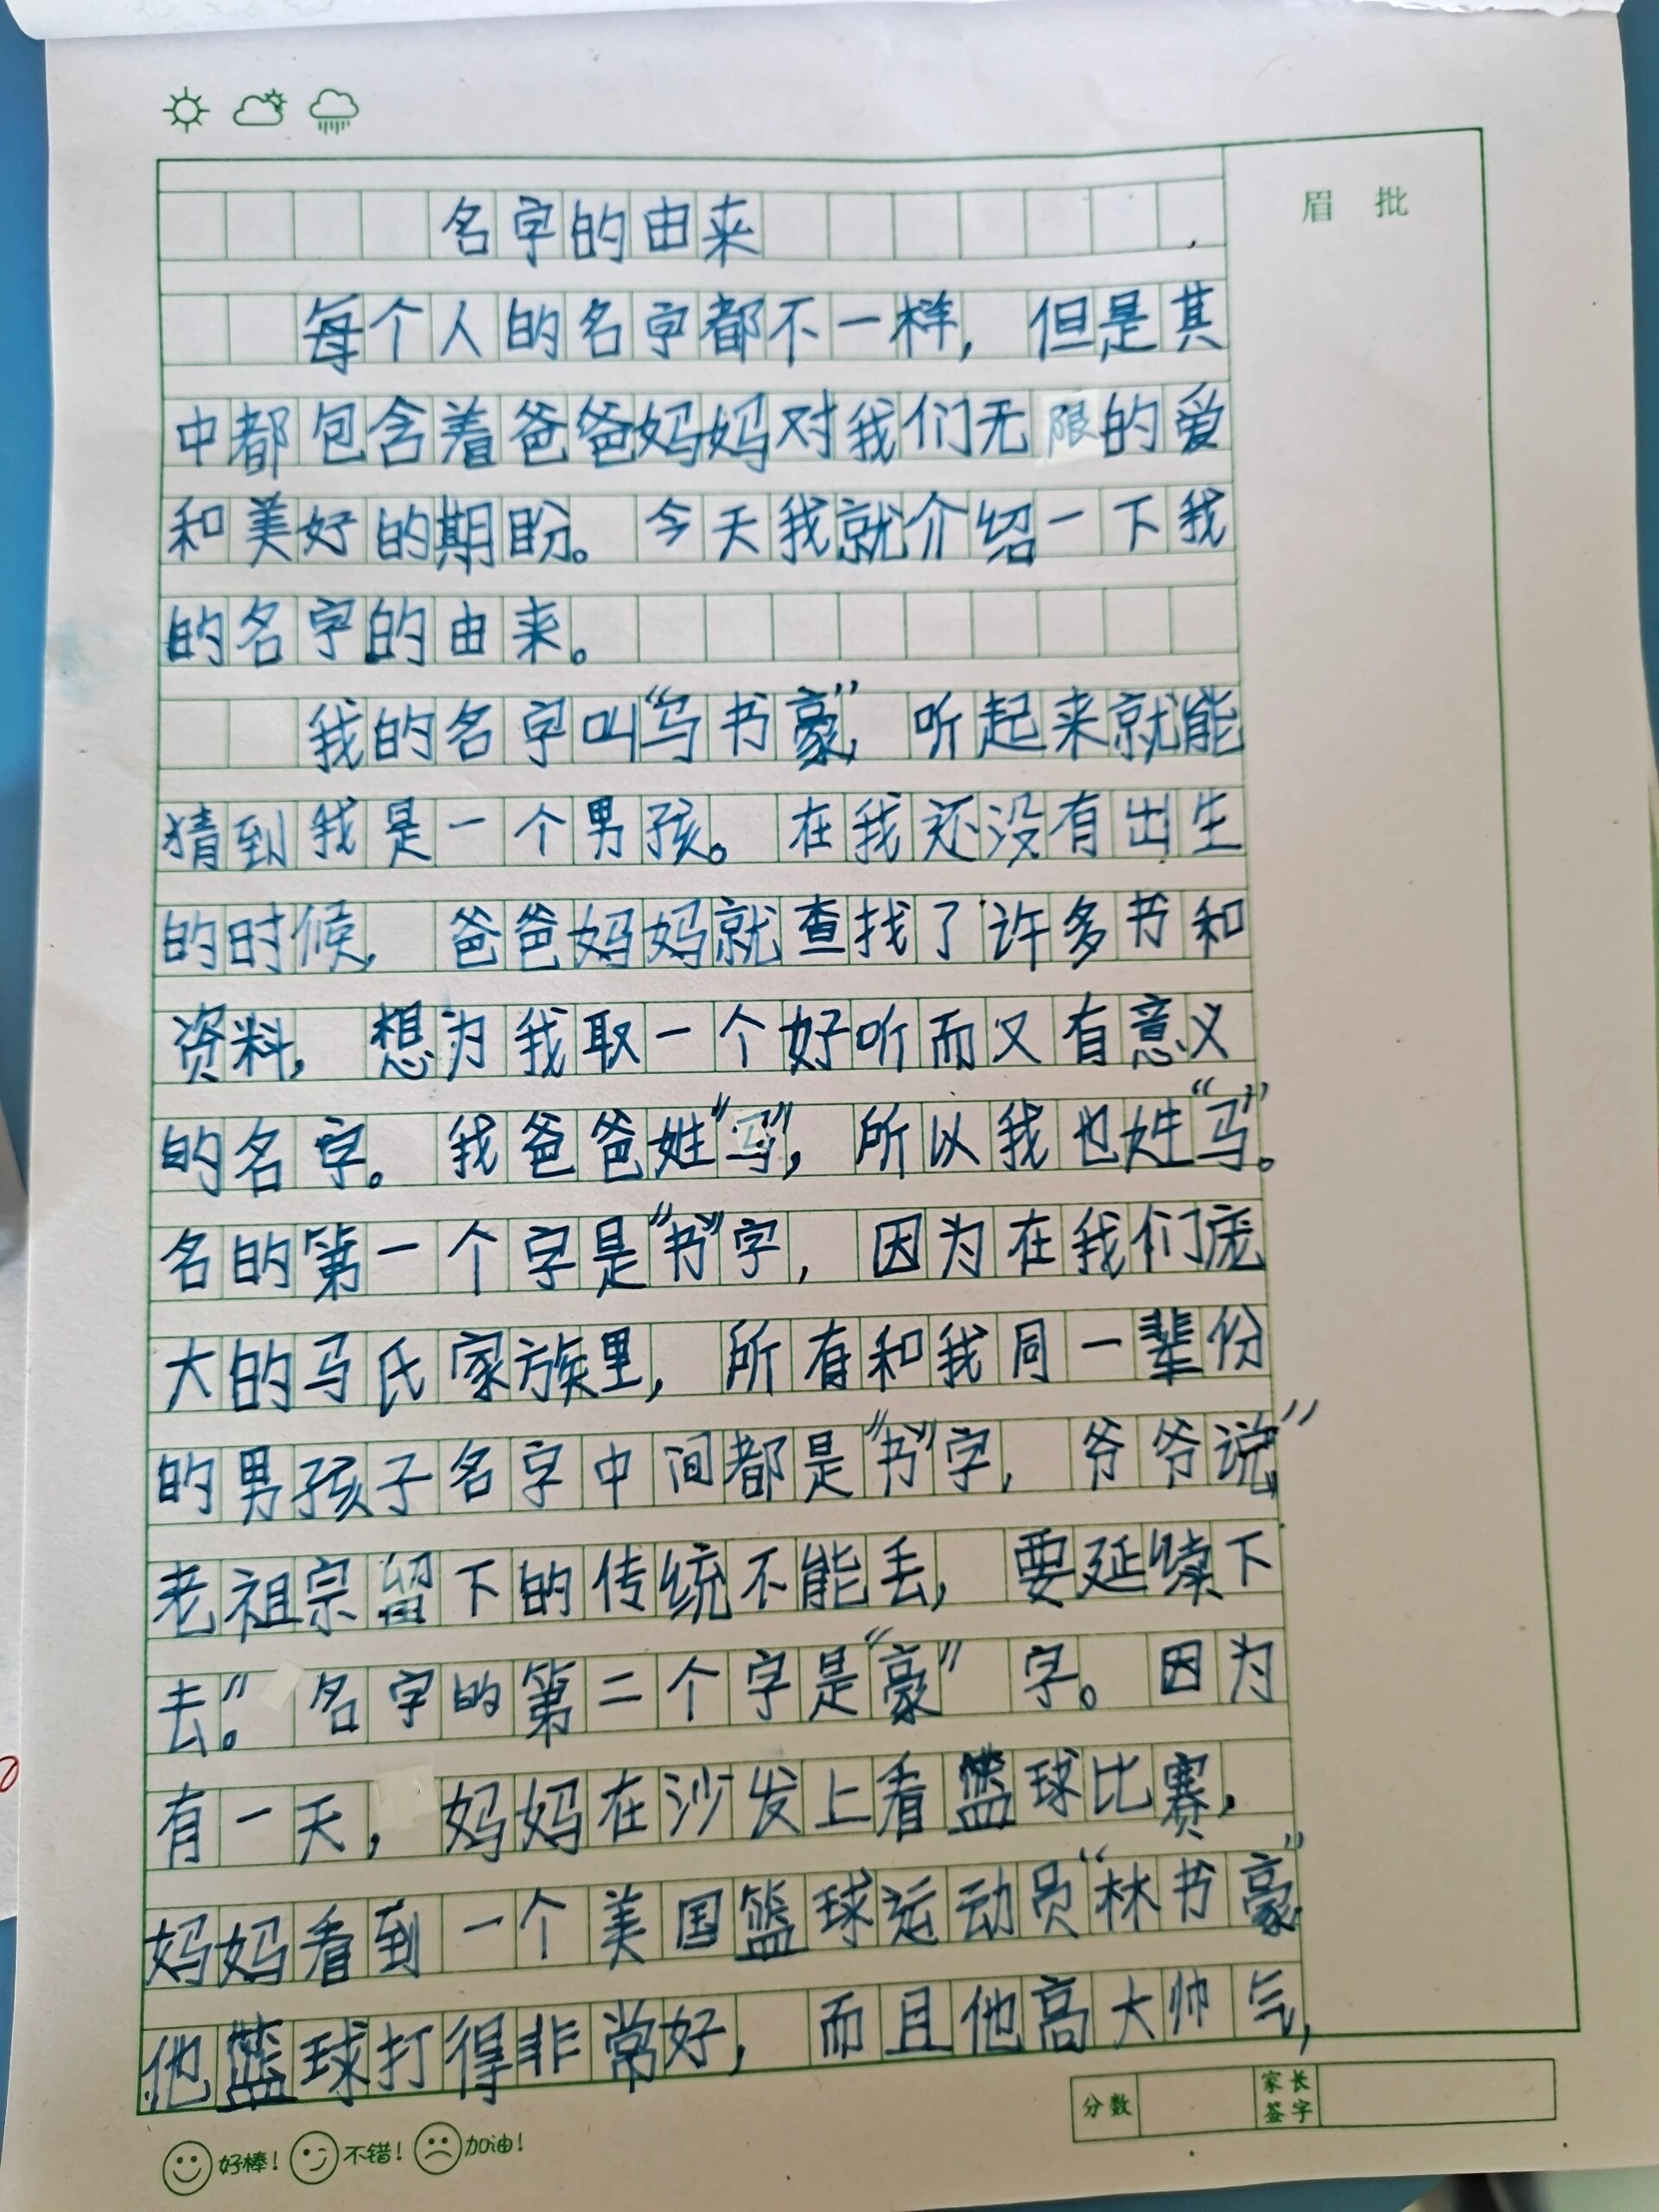 眉批
名字的由来
每个人的名字都不一样，但是其
中都包含着爸爸妈妈对我们无限的爱
和美好的期盼。今天我就介绍一下我
的名字的由来。
我的名字叫“马书豪”，听起来就能
猜到我是一个男孩。在我还没有出生
的时候，爸爸妈妈就查找了许多书和
资料，想为我取一个好听而又有意义
的名字。我爸爸姓“马”，所以我也姓“马”。
名的第一个字是“书”字，因为在我们庞
大的马氏家族里，所有和我同一辈份
的男孩子名字中间都是“书”字，爷爷说，“
老祖宗留下的传统不能丢，要延续下
去。”名字的第二个字是“豪”字。因为
有一天，妈妈在沙发上看篮球比赛，
妈妈看到一个美国篮球运动员“林书豪”
他篮球打得非常好，而且他高大帅气，
分数 家长签字
好棒！ 不错！ 加油！